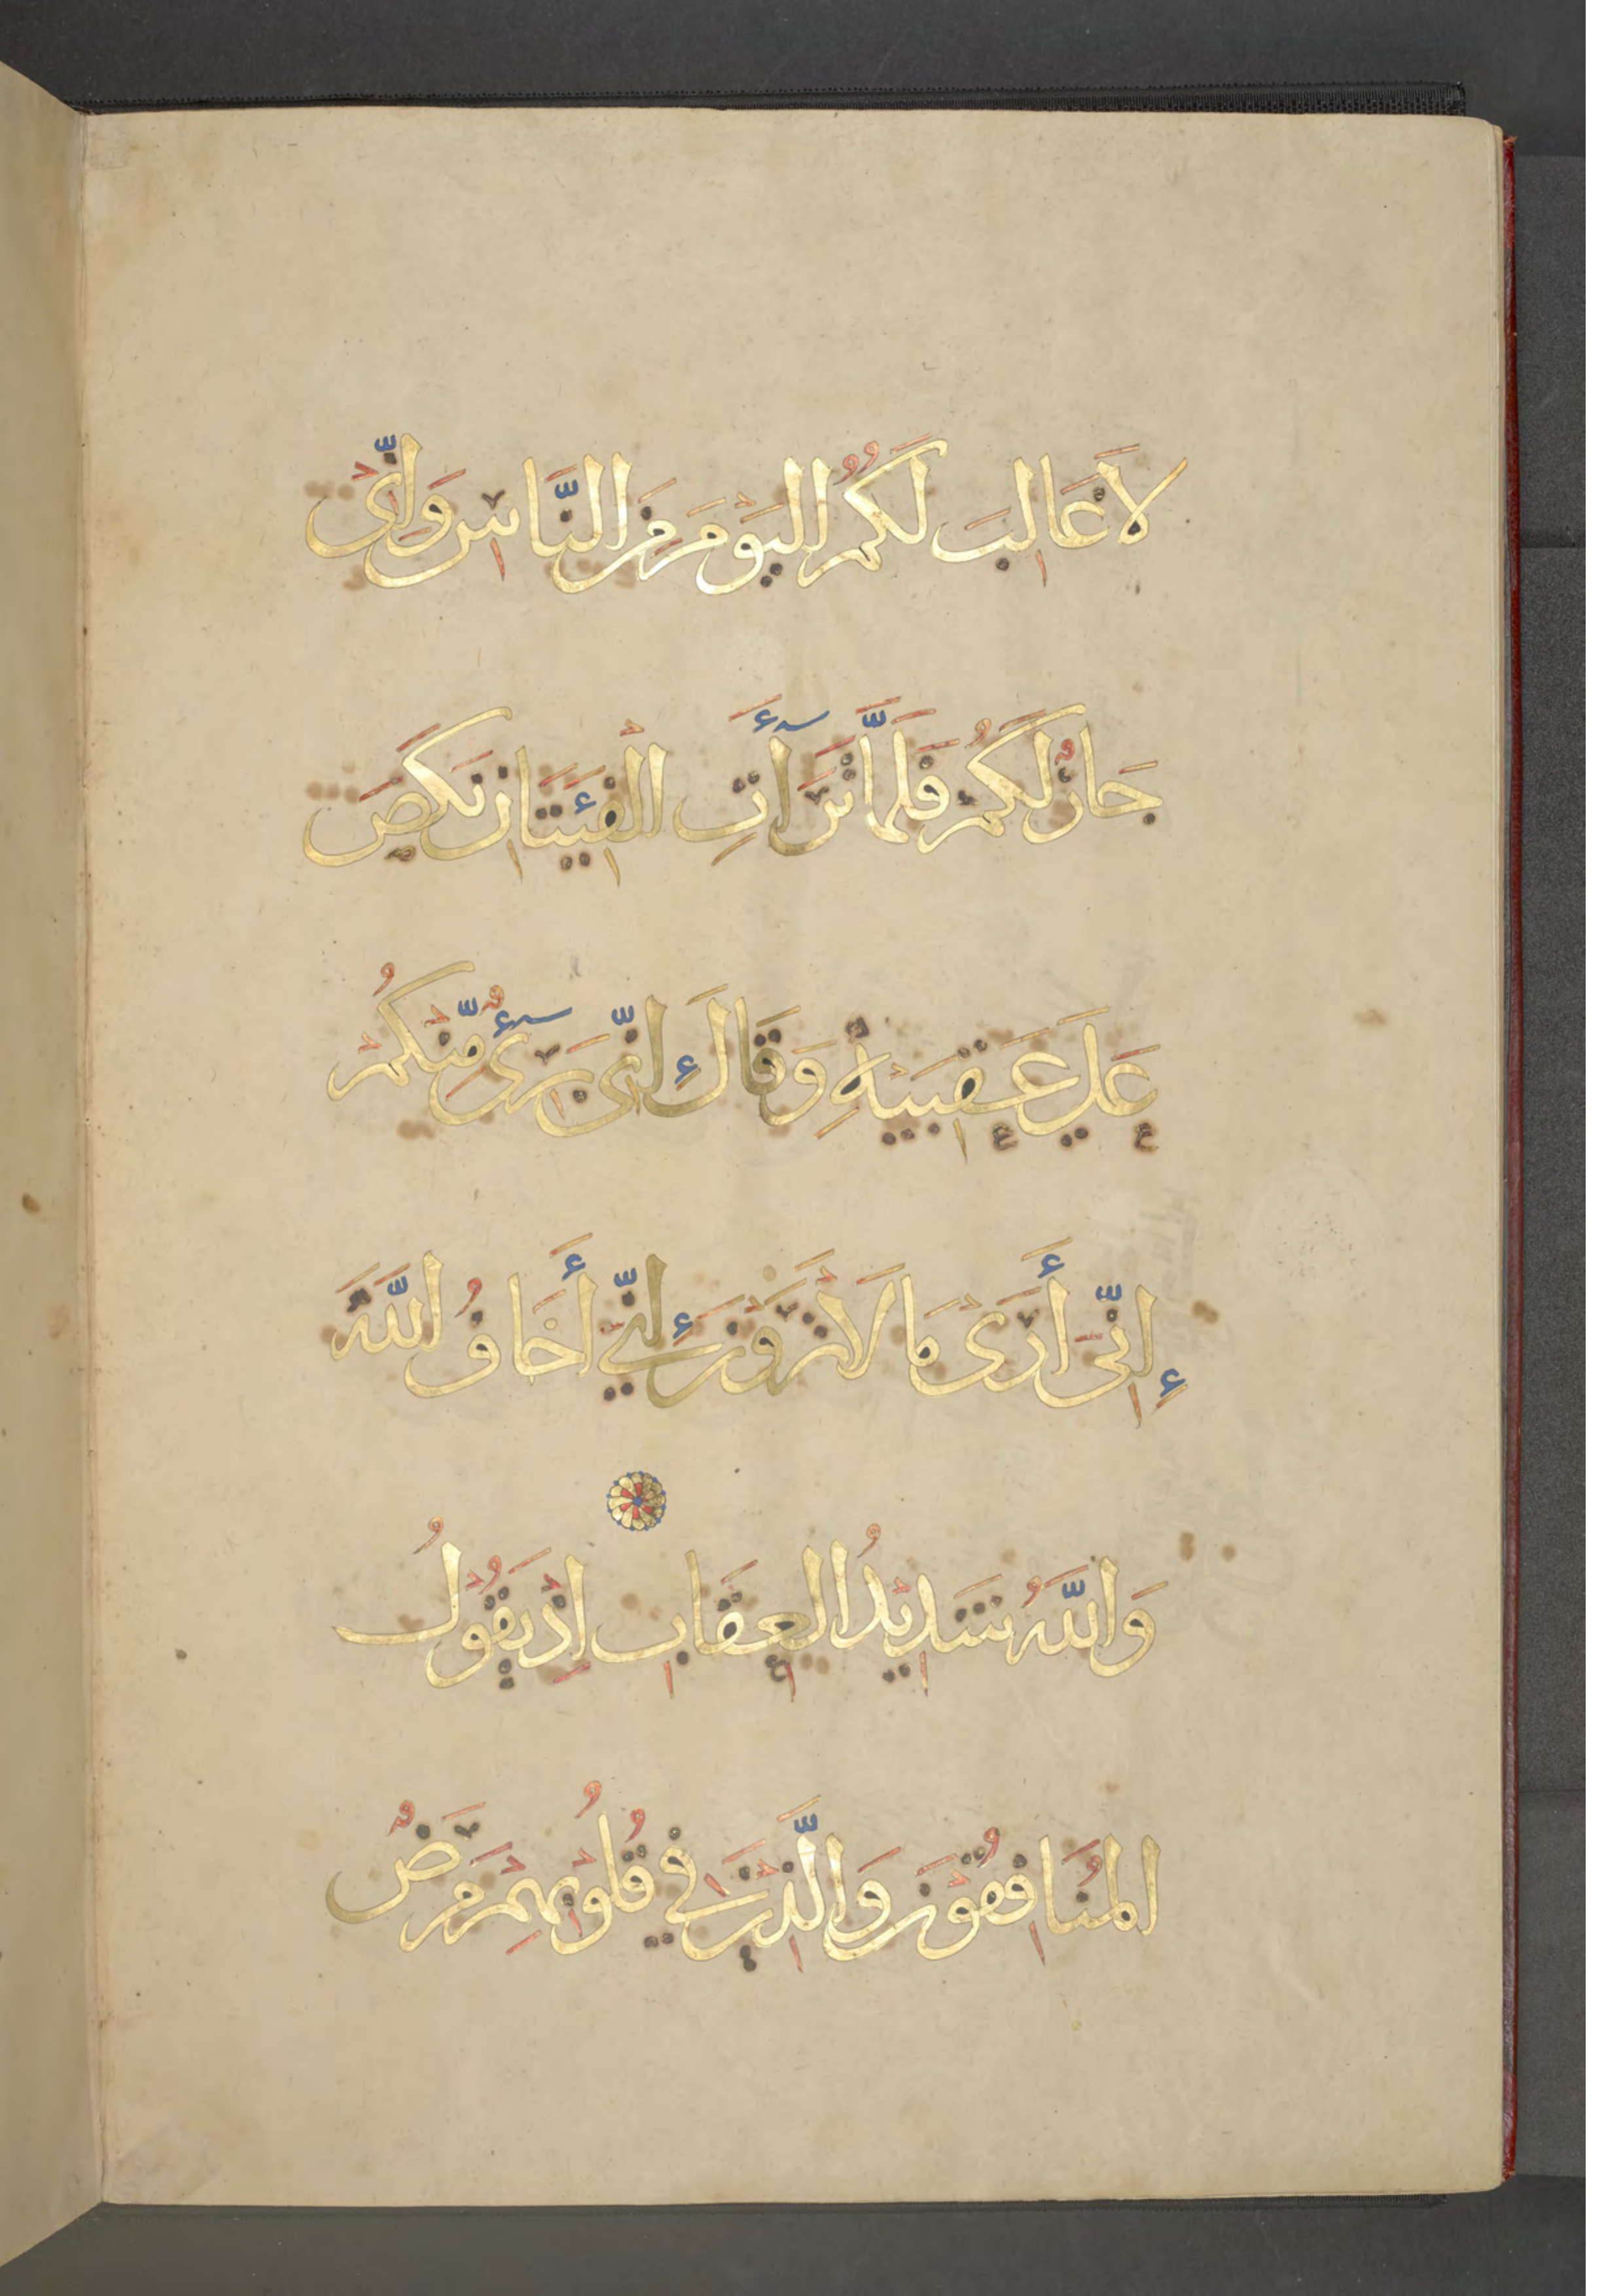 لَا غَالِبَ لَكُمُ الْيَوْمَ مِنَ النَّاسِ وَإِنِّي
جَارٌ لَكُمْ فَلَمَّا تَرَاءَتِ الْفِئَتَانِ نَكَصَ
عَلَى عَقِبَيْهِ وَقَالَ إِنِّي بَرِيءٌ مِّنْكُمْ
إِنِّي أَرَى مَا لَا تَرَوْنَ إِنِّي أَخَافُ اللَّهَ
وَاللَّهُ شَدِيدُ الْعِقَابِ إِذْ يَقُولُ
الْمُنَافِقُونَ وَالَّذِينَ فِي قُلُوبِهِمْ مَرَضٌ